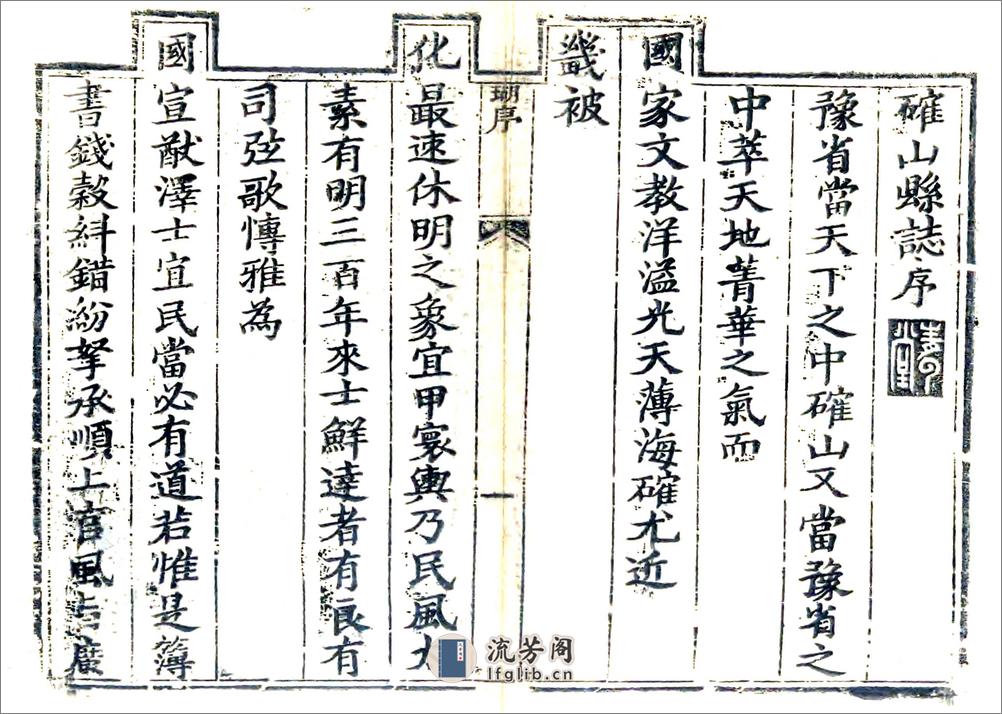 確山縣誌序
豫省當天下之中確山又當豫省之
中萃天地菁華之氣而
國家文教洋溢光天薄海確尤近
畿被
瑚序
一
化最速休明之象宜甲寰輿乃民風大
素有明三百年來士鮮達者有良有
司弦歌慱雅為
國宣猷澤士宜民當必有道若惟是簿
書錢穀糾錯紛拏承順上官風
流芳阁
lfglib.cn